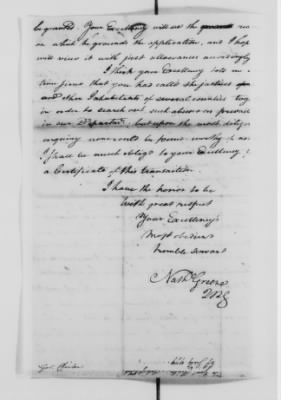 be granted. Your Excellency will see the ground
on which he grounds the application, and I hope
will view it with just allowances accordingly
I think your Excellency told
time since that you had called the justices
and other Inhabitants of several counties
in order to search out such abuses as prevail
in our Department; but upon the most
enquiry none could be found
I shall be much obligd to your Excellency
a Certificate of this transaction
I have the honor to be
With great respect
Your Excellency's
Most obedient
humble Servant
Nath Greene
QMG
Gov. Clinton